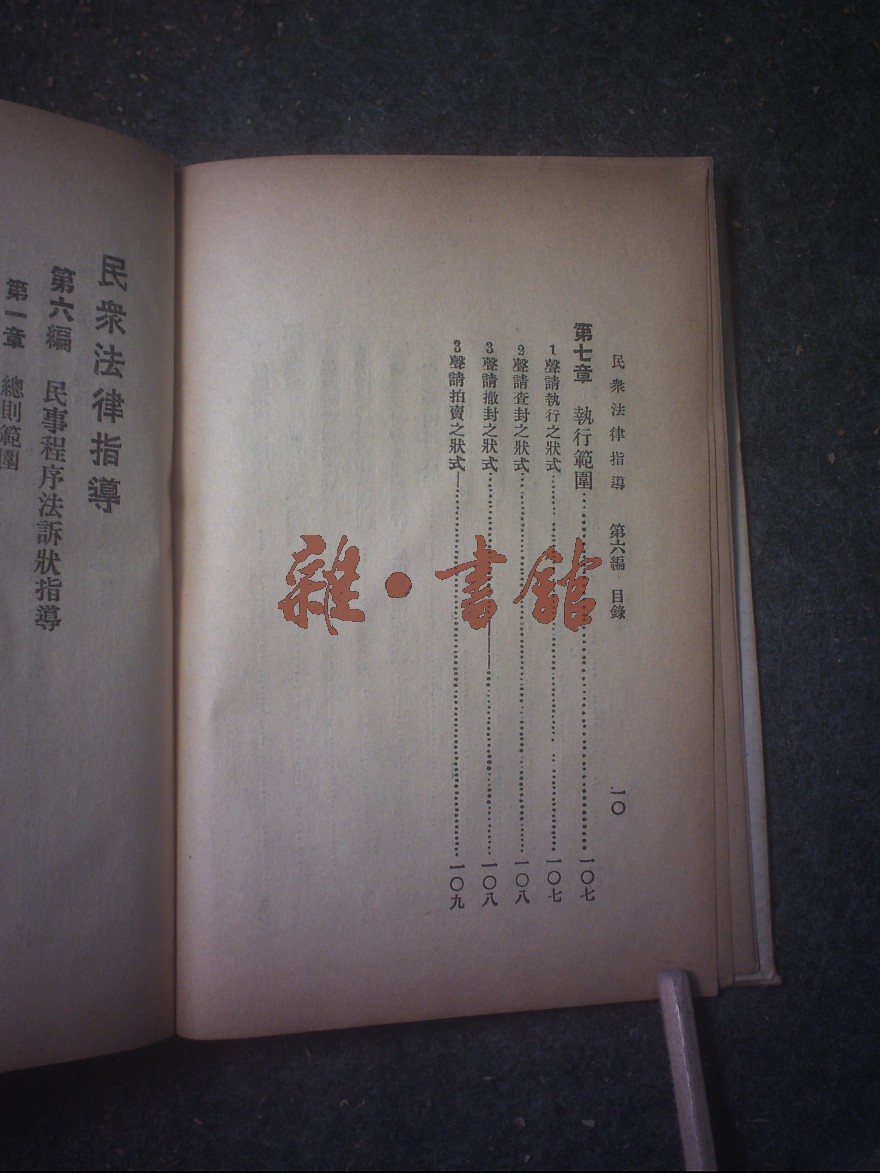 民衆法律指導　第六編　目錄　一〇
第七章　執行範圍……一〇七
1 聲請執行之狀式……一〇七
2 聲請查封之狀式……一〇八
3 聲請撤封之狀式……一〇八
3 聲請拍賣之狀式……一〇九
民衆法律指導
第六編　民事程序法訴狀指導
第一章　總則範圍
雜・書館